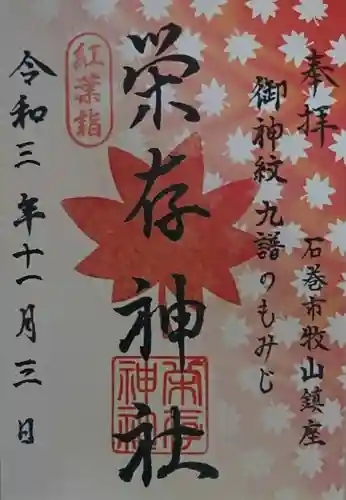 奉拝
石巻市牧山鎮座
御神紋九譜のもみじ
栄存神社
紅葉詣
令和三年十一月三日
栄存
神社